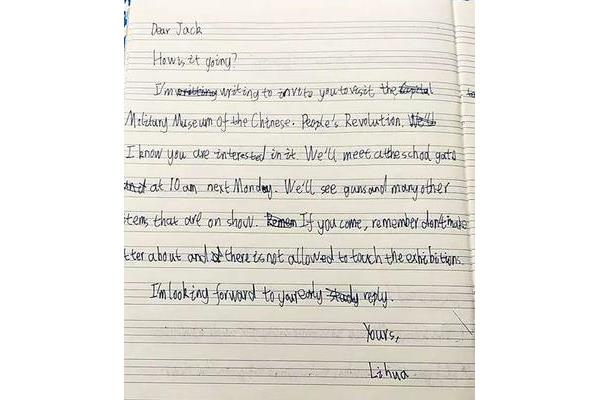 Dear Jack
How is it going?
I'm writing to invite you to visit the
Military Museum of the Chinese. People's Revolution.
I know you are interested in it. We'll meet at the school gate
at 10 am next Monday. We'll see guns and many other
tems that are on show. If you come, remember don't make
tter about and there is not allowed to touch the exhibitions.
I'm looking forward to your early reply.
Yours,
Lihua